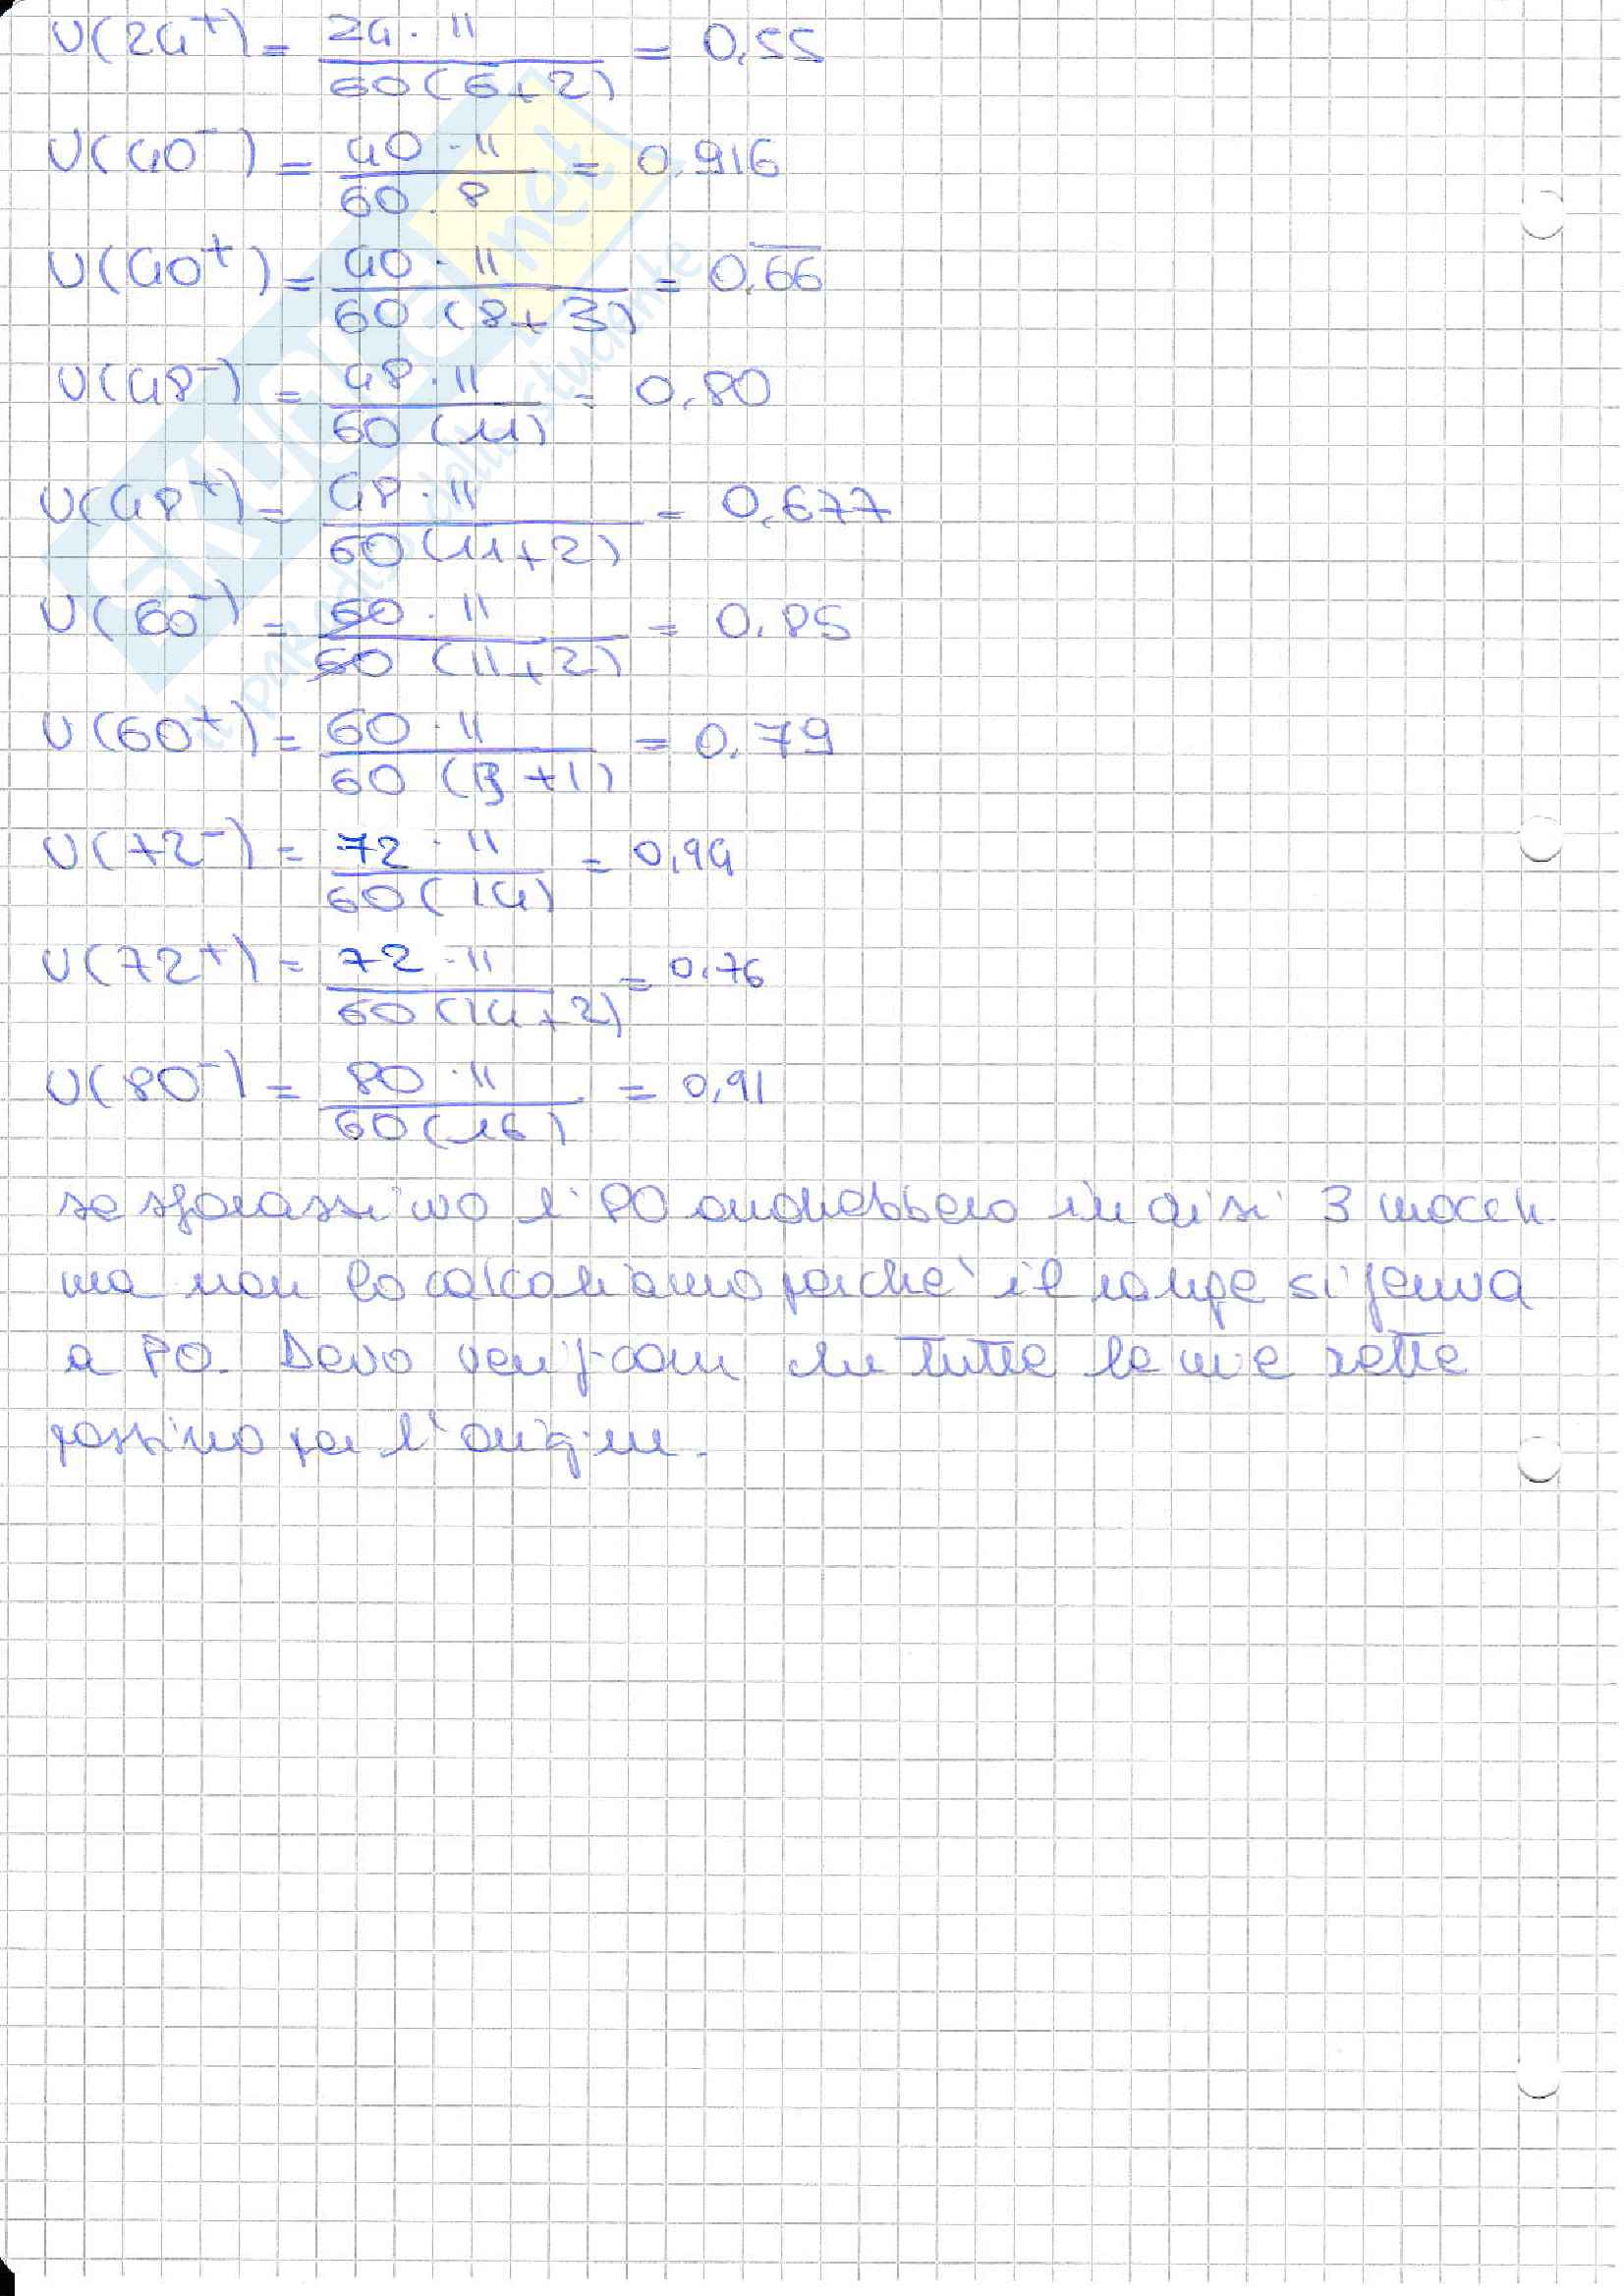 U(24⁺) = 24 · 11 / 60(6+2) = 0,55
U(40⁻) = 40 · 11 / 60 · 8 = 0,916
U(40⁺) = 40 · 11 / 60 (8+3) = 0,6̅6̅
U(48⁻) = 48 · 11 / 60 (11) = 0,80
U(48⁺) = 48 · 11 / 60 (11+2) = 0,677
U(60⁻) = 60 · 11 / 60 (11+2) = 0,85
U(60⁺) = 60 · 11 / 60 (13+1) = 0,79
U(72⁻) = 72 · 11 / 60 (14) = 0,94
U(72⁺) = 72 · 11 / 60 (14+2) = 0,76
U(80⁻) = 80 · 11 / 60 (16) = 0,91
se sforassimo l'80 andrebbero in crisi 3 macch.
ma non lo calcoliamo perché il range si ferma
a 80. Devo verificare che tutte le mie rette
passino per l'origine.
SKUOLA.net
il paradiso dello studente